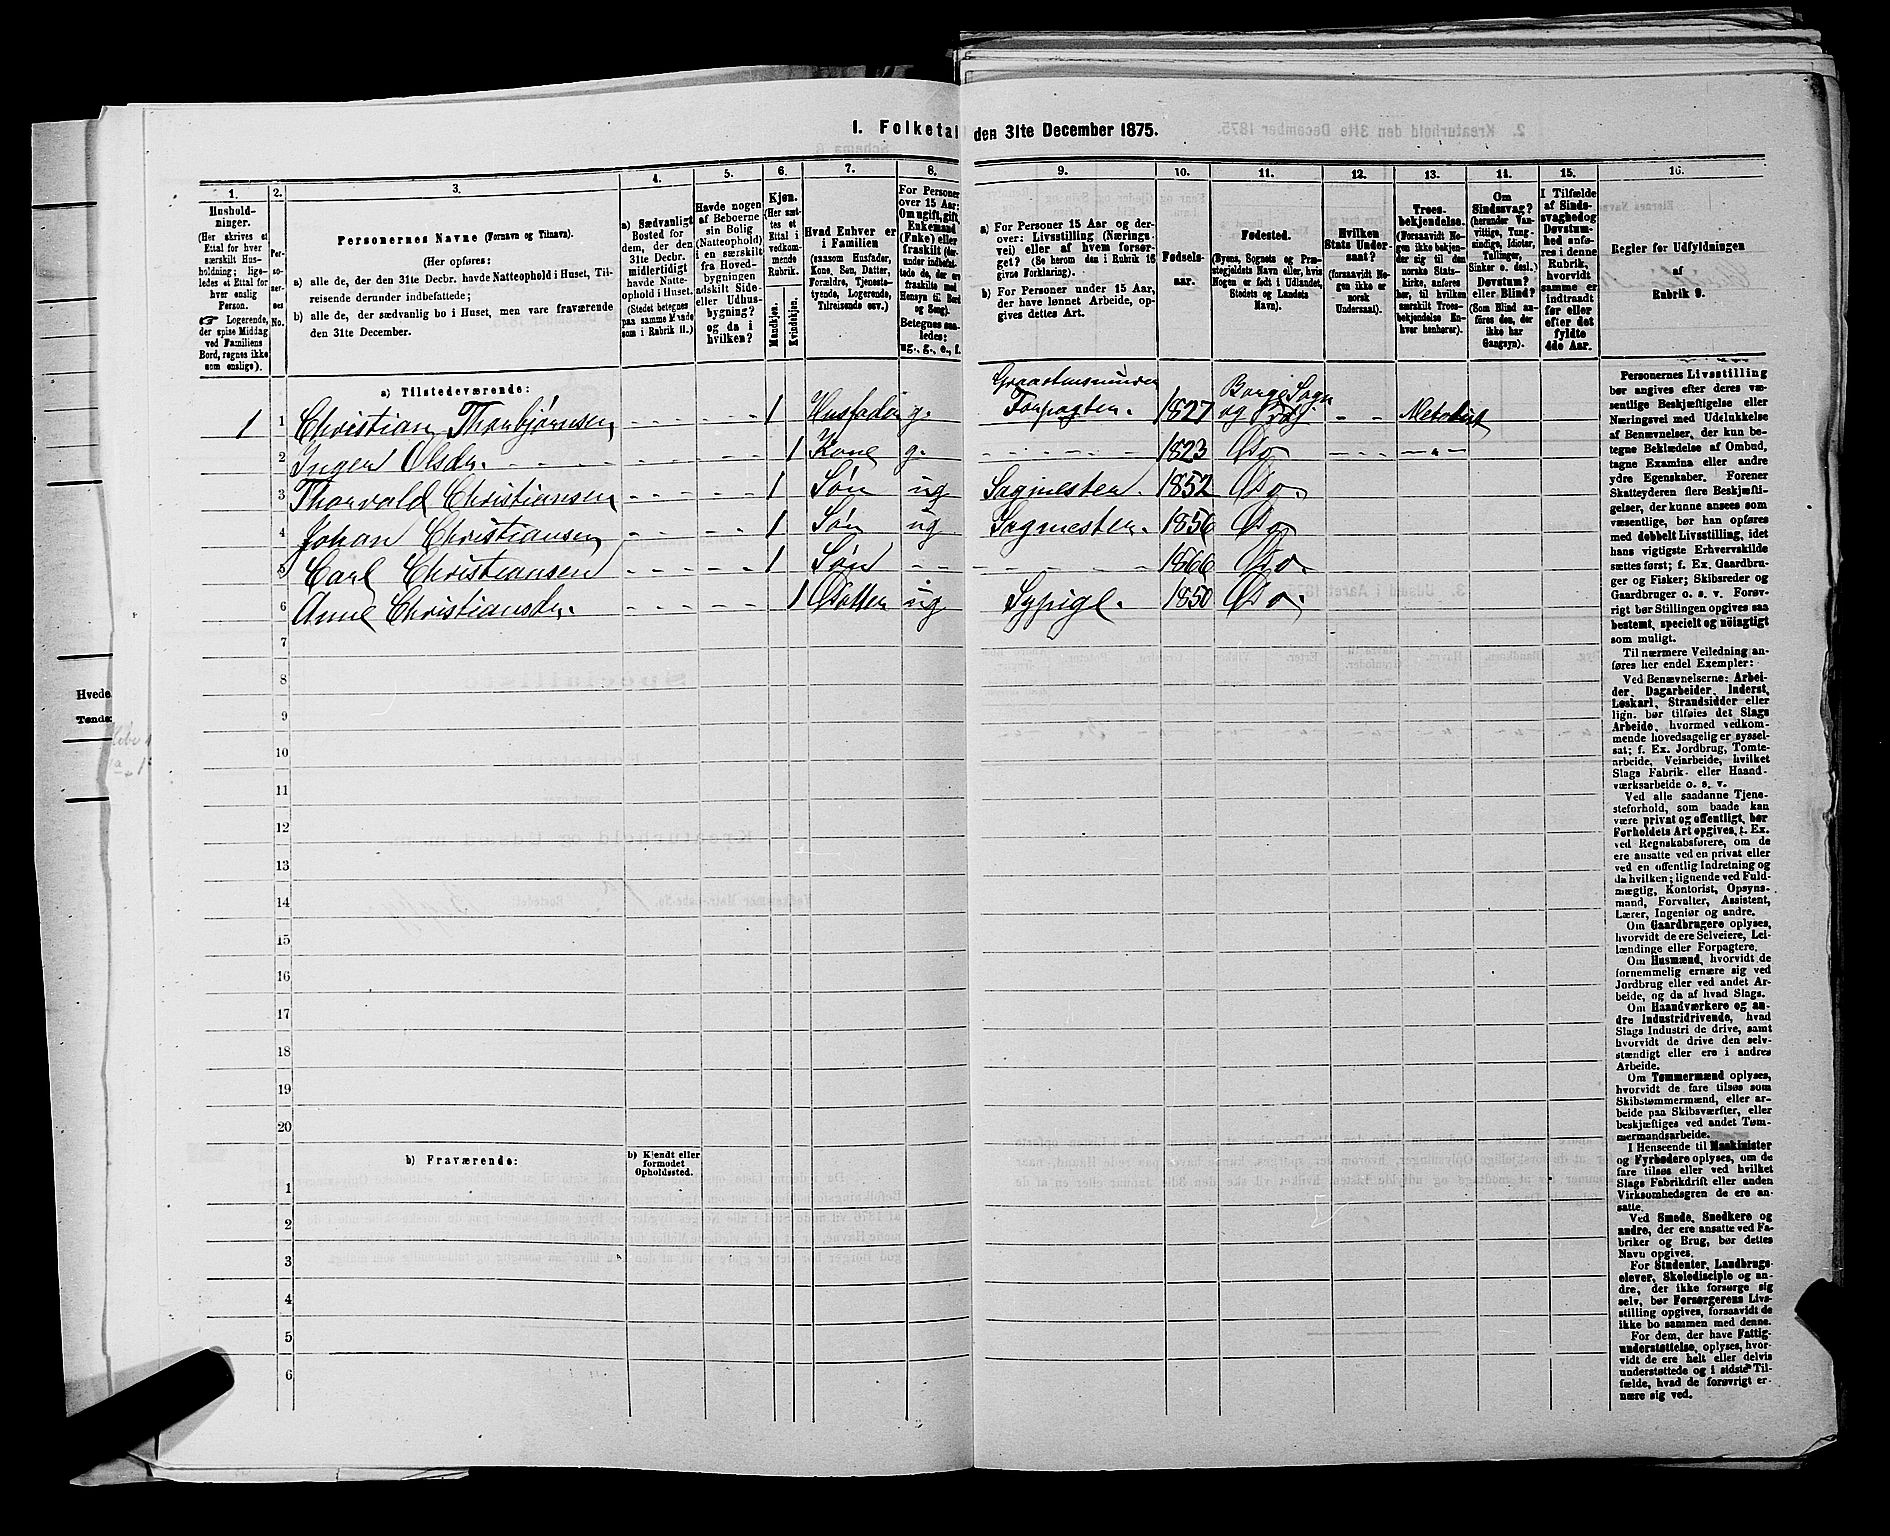 1. Folketal den 31te December 1875.
1. 2. 3. 4. 5. 6. 7. 8. 9. 10. 11. 12. 13. 14. 15. 16.
Hushold-
ninger.
(Her skrives et
Ettal for hver
særskilt Hus-
holdning; lige-
ledes et Ettal for
hver enslig
Person.
☞ Logerende,
der spise Middag
ved Familiens
Bord, regnes ikke
som enslige).
Per-
so-
ner-
nes
No.
Personernes Navne (Fornavn og Tilnavn).
(Her opføres:
a) alle de, der den 31te Decbr. havde Natteophold i Huset, Til-
reisende derunder indbefattede;
b) alle de, der sædvanlig bo i Huset, men vare fraværende
den 31te December.
a) Sædvanligt
Bosted for
dem, der den
31te Decbr.
midlertidigt
havde Natte-
ophold i Huset.
(Stedet betegnes
paa samme Maade
som i Rubrik 11.)
Havde nogen
af Beboerne
sin Bolig
(Natteophold)
i en særskilt
fra Hoved-
bygningen
adskilt Side-
eller Udhus-
bygning?
og da i
hvilken?
Kjøn.
(Her sæt-
tes et
Ettal i
vedkom-
mende
Rubrik.)
Mandkjøn.
Kvindekjøn.
Hvad Enhver er
i Familien
(saasom Husfader,
Kone, Søn, Datter,
Forældre, Tjeneste-
tyende, Logerende,
Tilreisende osv.)
For Personer
over 15 Aar:
Om ugift, gift,
Enkemand
(Enke) eller
fraskilt (der-
under indbefat-
tede de, der ere
fraskilte med
Hensyn til Bord
og Seng).
Betegnes saa-
ledes:
ug., g., e., f.
a) For Personer 15 Aar og der-
over: Livsstilling (Nærings-
vei) eller af hvem forsør-
get? (Se herom den i Rubrik 16
givne Forklaring).
b) For Personer under 15 Aar,
der have lønnet Arbeide, op-
gives dettes Art.
Fødsels-
aar.
Fødested.
(Byens, Sognets og Præ-
stegjeldets Navn eller, hvis
Nogen er født i Udlandet,
Stedets og Landets
Navn).
Hvilken
Stats Under-
saat?
(forsaavidt No-
gen ikke er
norsk
Undersaat).
Troes-
bekjendelse.
(Forsaavidt No-
gen ikke bekjen-
der sig til den
norske Stats-
kirke, anføres
her, til hvilken
særskilt Troes-
bekjendelse En-
hver henhører).
Om
Sindssvag?
(herunder Van-
vittige, Tung-
sindige, Idioter,
Tullinger,
Sinker o. desl.)
Døvstum?
eller Blind?
(Som Blind an-
føres den, der
ikke har
Gangsyn).
I Tilfælde
af Sinds-
svaghed og
Døvstum-
hed anfø-
res i denne
Rubrik,
hvorvidt
samme er
indtraadt
før eller
efter det
fyldte
4de Aar.
Regler for Udfyldningen
af
Rubrik 9.
a) Tilstedeværende:
1 1 Christian Thorbjørnsen - - - - - - 1 Husfader g. Graastensminder Forpagter. 1827 Borge Sogn og Præg - - Metodist
2 Inger Olsdr. - - - - - 1 Kone g. - - - - - 1823 Do - - - - „ -
3 Thorvald Christiansen - - - - - - 1 Søn ug Sagmester. 1852 Do.
4 Johan Christiansen - - - - - 1 Søn ug Sagmester. 1856 Do
5 Carl Christiansen - - - - - - 1 Søn - - - - - - - 1866 Do.
6 Anne Christiansdr. - - - - - - 1 Datter ug Sypige. 1850 Do.
7
8
9
10
11
12
13
14
15
16
17
18
19
20
b) Fraværende:
b) Kjendt eller
formodet
Opholdssted.
1
2
3
4
5
6
Personernes Livsstilling
bør angives efter deres væ-
sentlige Beskjæftigelse eller
Næringsvei med Udelukkelse
af Benævnelser, der kun be-
tegne Beklædelse af Ombud,
tagne Examina eller andre
ydre Egenskaber. Forener
Skatteyderen flere Beskjæfti-
gelser, der kunne ansees som
væsentlige, bør han opføres
med dobbelt Livsstilling, idet
hans vigtigste Erhvervskilde
sættes først; f. Ex. Gaardbru-
ger og Fisker; Skibsreder og
Gaardbruger o. s. v. Forøv-
rigt bør Stillingen opgives saa
bestemt, specielt og nöiagtigt
som muligt.
Til nærmere Veiledning an-
føres her endel Exempler:
Ved Benævnelserne: Arbei-
der, Dagarbeider, Inderst,
Løskarl, Strandsidder eller
lign. bør tilføies det Slags
Arbeide, hvormed vedkom-
mende hovedsagelig er syssel-
sat; f. Ex. Jordbrug, Tomte-
arbeide, Veiarbeide, hvilket
Slags Fabrik- eller Haand-
værksarbeide o. s. v.
Ved alle saadanne Tjene-
steforhold, som baade kan
være privat og offentligt, bør
Forholdets Art opgives, f. Ex.
ved Regnskabsførere, om de
ere ansatte ved en privat eller
ved en offentlig Indretning og
da hvilken; lignende ved Fuld-
mægtig, Kontorist, Opsyns-
mand, Forvalter, Assistent,
Lærer, Ingeniør og andre.
Om Gaardbrugere oplyses,
hvorvidt de ere Selveiere, Lei-
lændinge eller Forpagtere.
Om Husmænd, hvorvidt de
fornemmelig ernære sig ved
Jordbrug eller ved andet Ar-
beide, og da af hvad Slags.
Om Haandværkere og an-
dre Industridrivende, hvad
Slags Industri de drive, samt
hvorvidt de drive den selv-
stændigt eller ere i andres
Arbeide.
Om Tømmermænd oplyses,
hvorvidt de fare tilsøs som
Skibstømmermænd, eller ar-
beide paa Skibsværfter, eller
beskjæftiges ved andet Tøm-
mermandsarbeide.
I Henseende til Maskinister
og Fyrbødere oplyses, om de
fare tilsøs eller ved hvilket
Slags Fabrikdrift eller anden
Virksomhedsgren de ere an-
satte.
Ved Smede, Snedkere og
andre, der ere ansatte ved Fa-
briker og Brug, bør dettes
Navn opgives.
For Studenter, Landbrugs-
elever, Skoledisciple og an-
dre, der ikke forsørge sig
selv, bør Forsørgerens Livs-
stilling opgives, forsaavidt de
ikke bo sammen med denne.
For dem, der have Fattig-
understøttelse, oplyses, hvor-
vidt de ere helt eller delvis
understøttede og i sidste Til-
fælde, hvad de forøvrigt er-
nære sig ved.
Hvede.
Tønder